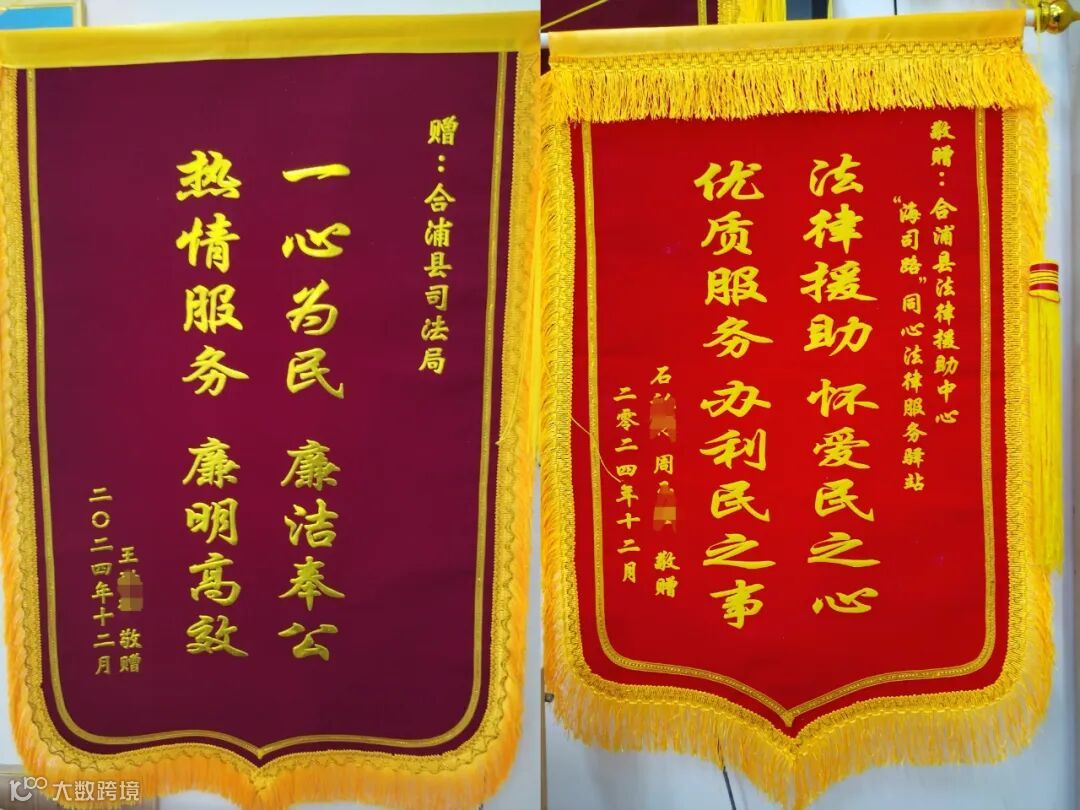 赠：合浦县司法局
一心为民 廉洁奉公
热情服务 廉明高效
王 敬赠
二〇二四年十二月
敬赠：合浦县法律援助中心
“海司路”同心法律服务驿站
法律援助 怀爱民之心
优质服务 办利民之事
石 周 敬赠
二零二四年十二月
大数跨境